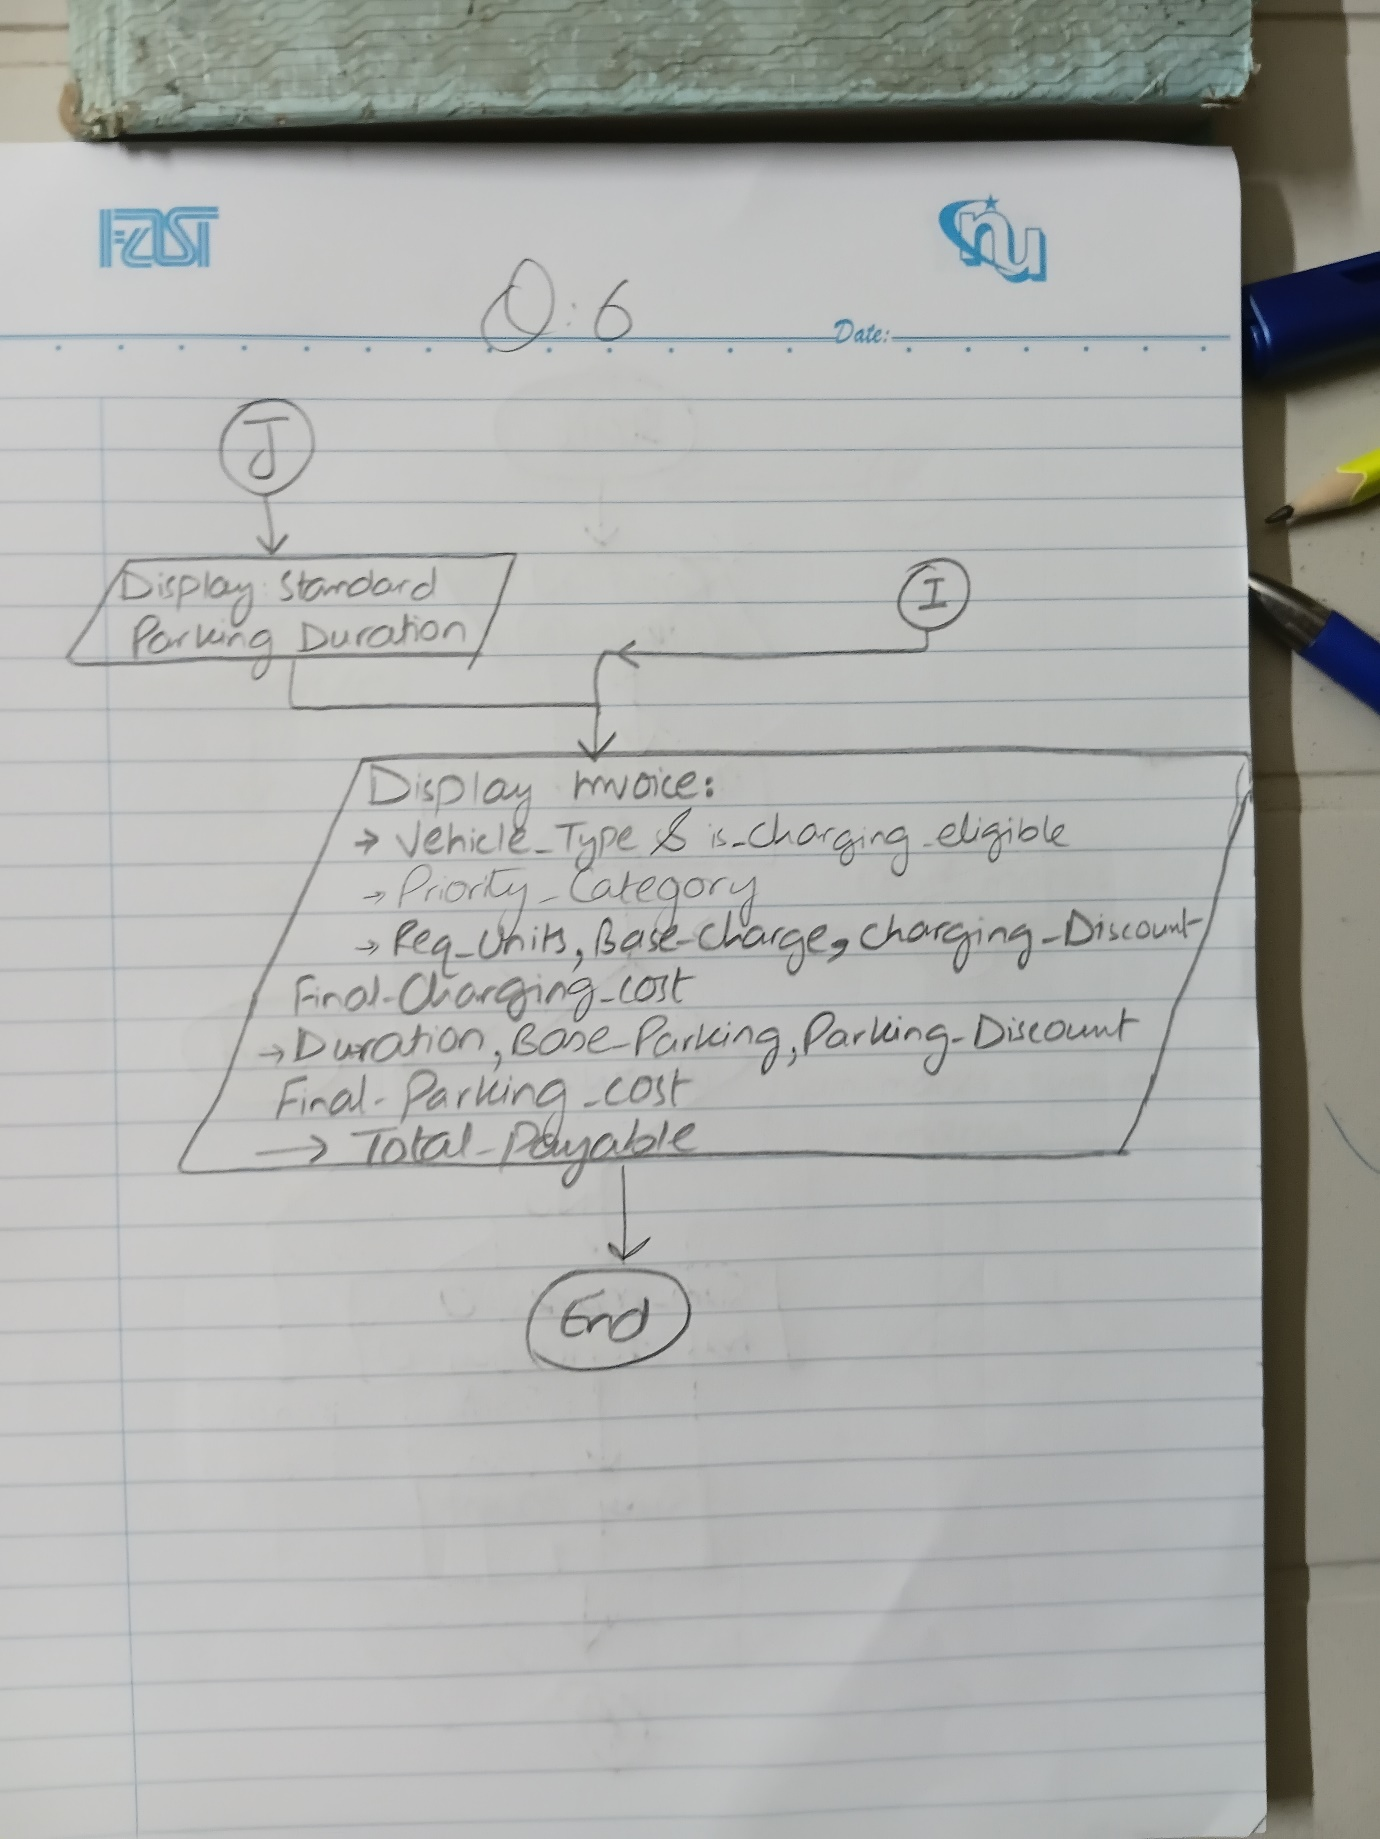 FAST
nu
Q:6
Date:
J
Display Standard
Parking Duration
I
Display Invoice:
→ Vehicle_Type & is_Charging_eligible
→ Priority_Category
→ Req_Units, Base_Charge, Charging_Discount
Final_Charging_cost
→ Duration, Base_Parking, Parking_Discount
Final_Parking_cost
→ Total_Payable
End